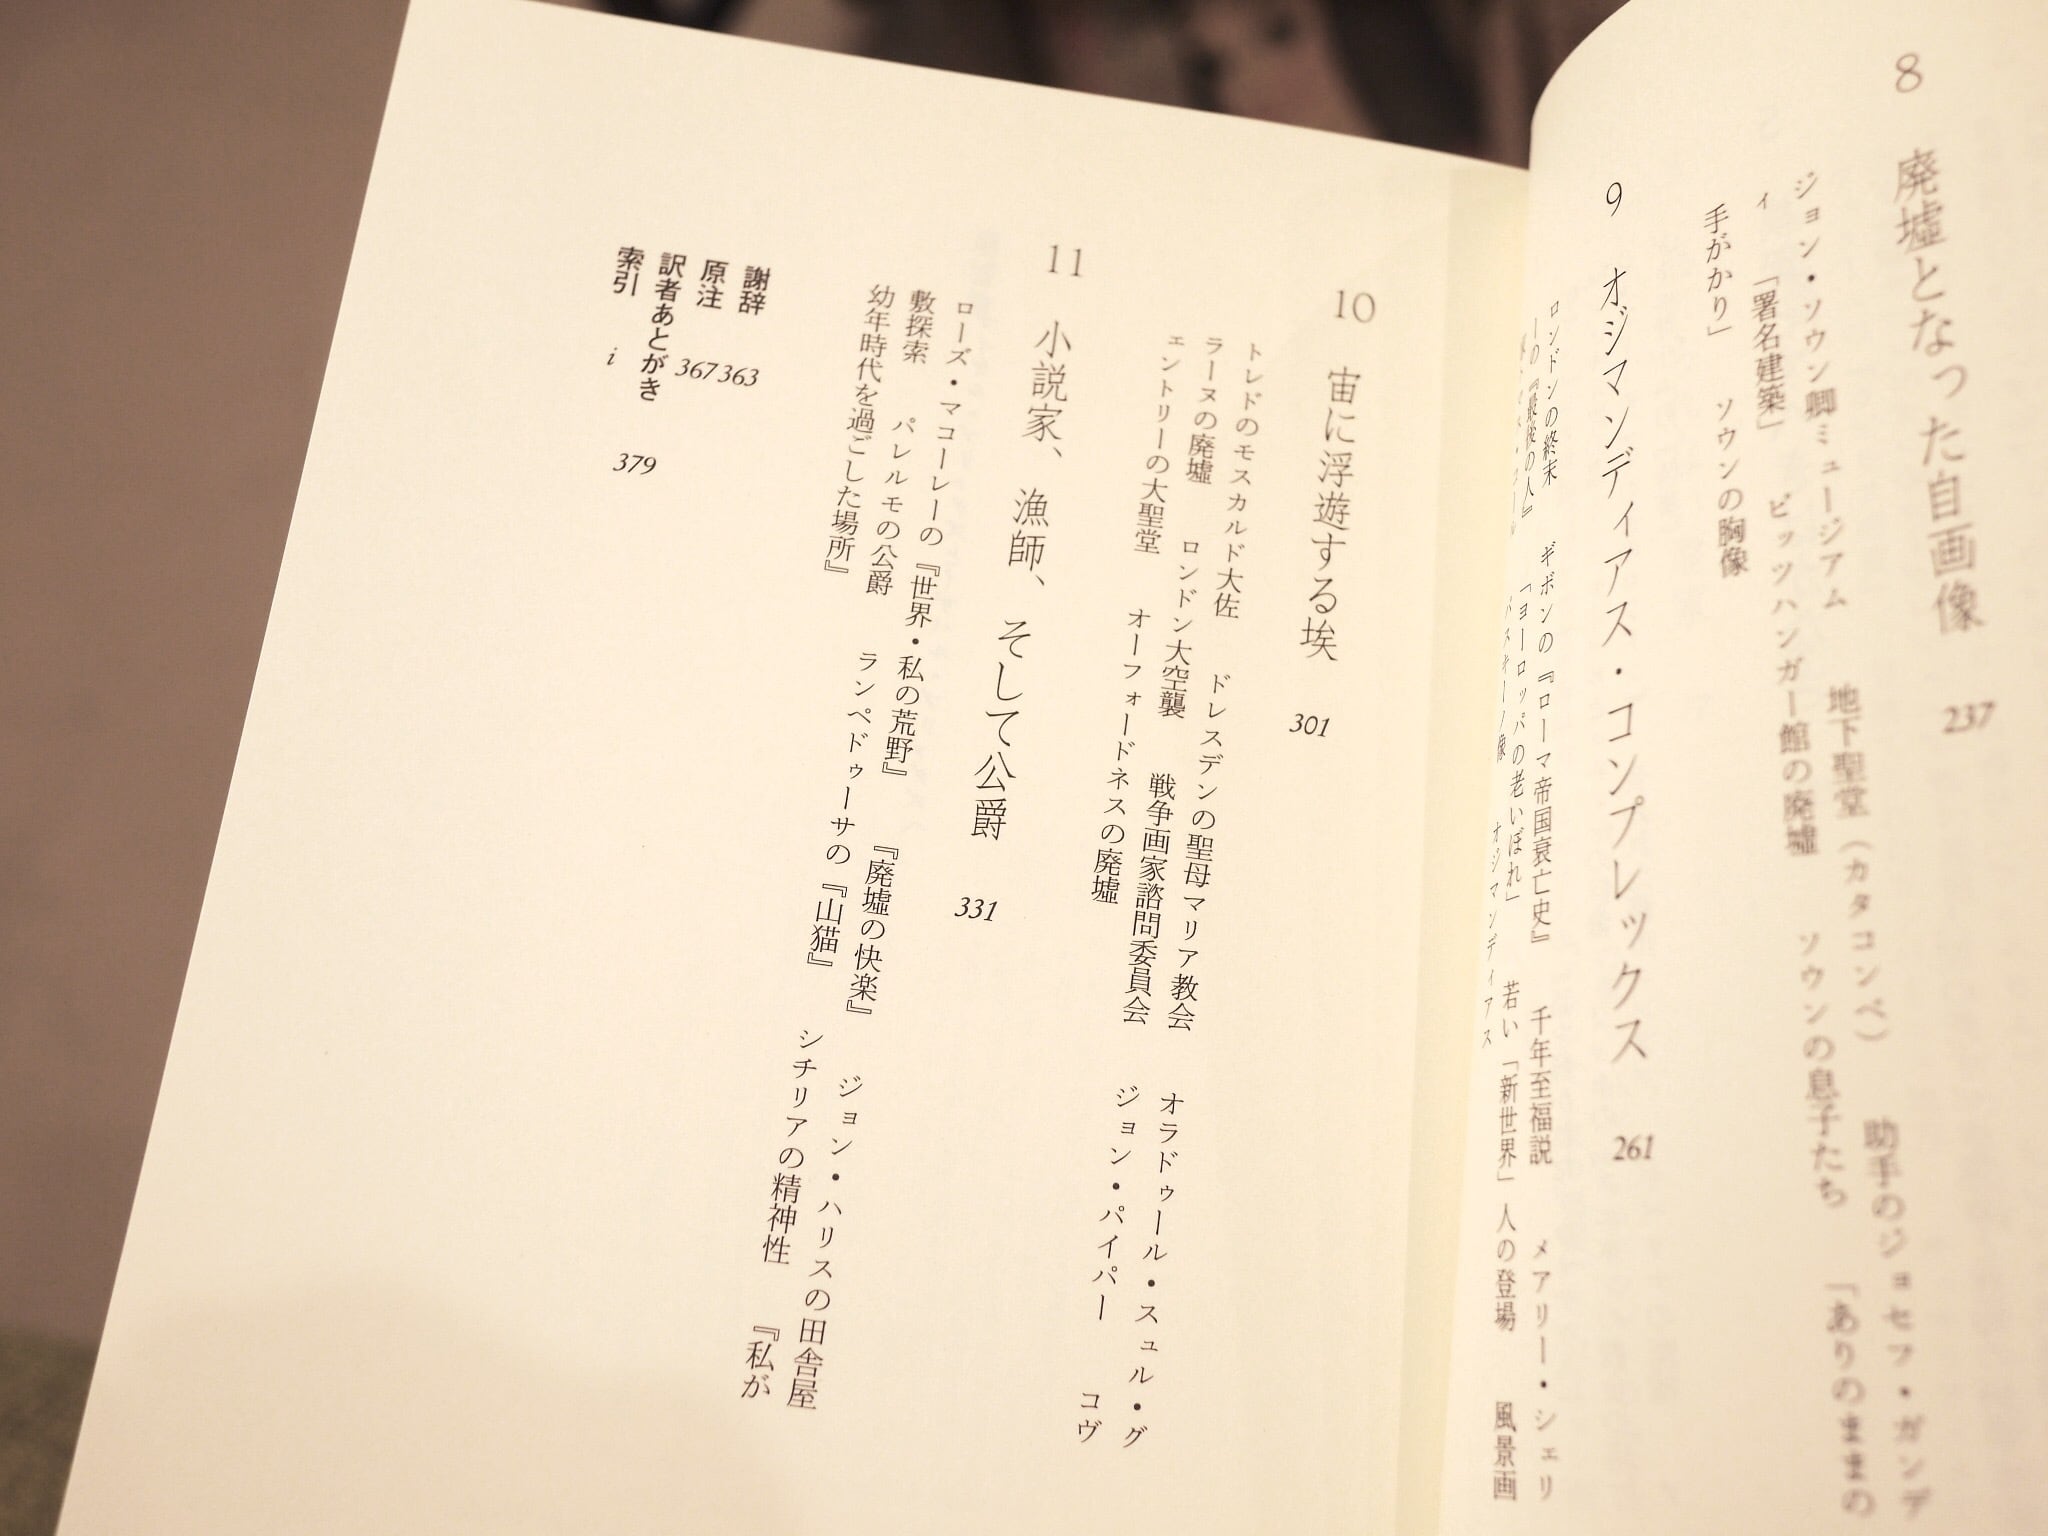 8 廃墟となった自画像 237
ジョン・ソウン卿ミュージアム 地下聖堂（カタコンベ） 助手のジョセフ・ガンデ
ィ 「署名建築」 ピッツハンガー館の廃墟 ソウンの息子たち 「ありのままの
手がかり」 ソウンの胸像
9 オジマンディアス・コンプレックス 261
ロンドンの終末 ギボンの『ローマ帝国衰亡史』 千年至福説 メアリー・シェリ
ーの『最後の人』 「ヨーロッパの老いぼれ」 若い「新世界」人の登場 風景画
オジマンディアス
10 宙に浮遊する埃 301
トレドのモスカルド大佐 ドレスデンの聖母マリア教会 オラドゥール・スュル・グ
ラーヌの廃墟 ロンドン大空襲 戦争画家諮問委員会 ジョン・パイパー コヴ
ェントリーの大聖堂 オーフォードネスの廃墟
11 小説家、漁師、そして公爵 331
ローズ・マコーレーの『世界・私の荒野』 『廃墟の快楽』 ジョン・ハリスの田舎屋
敷探索 パレルモの公爵 ランペドゥーサの『山猫』 シチリアの精神性 『私が
幼年時代を過ごした場所』
謝辞 363
原注 367
訳者あとがき 379
索引 i